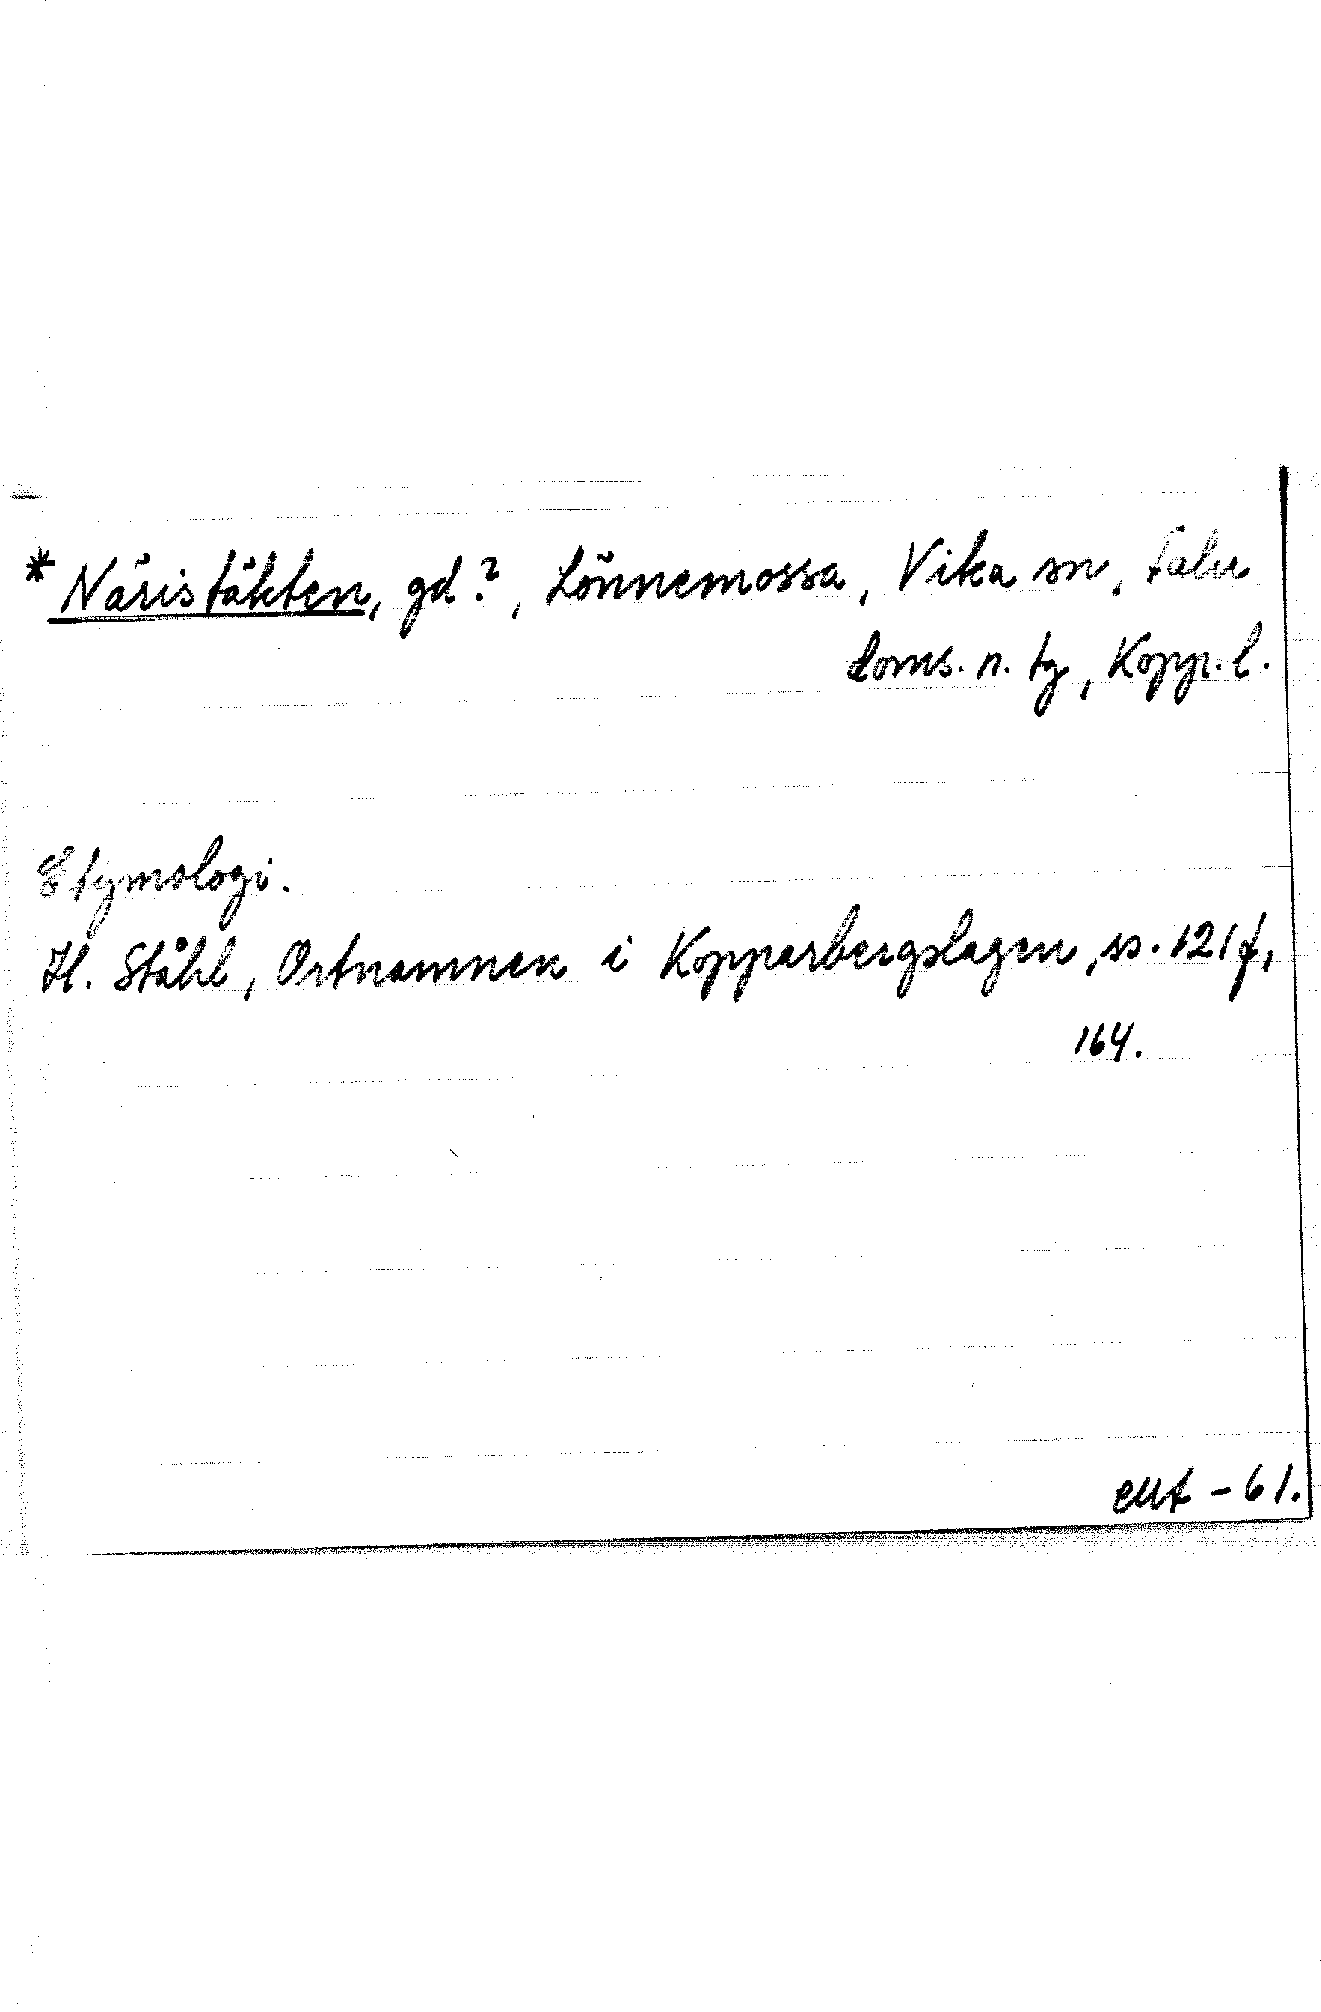 * Näristäkten, gd?, Lönnemossa, Vika sn, Falu
doms. n. tg, Kopp. l.
Etymologi.
H. Ståhl, Ortnamnen i Kopparbergslagen, ss. 121 f,
164.
- 61.